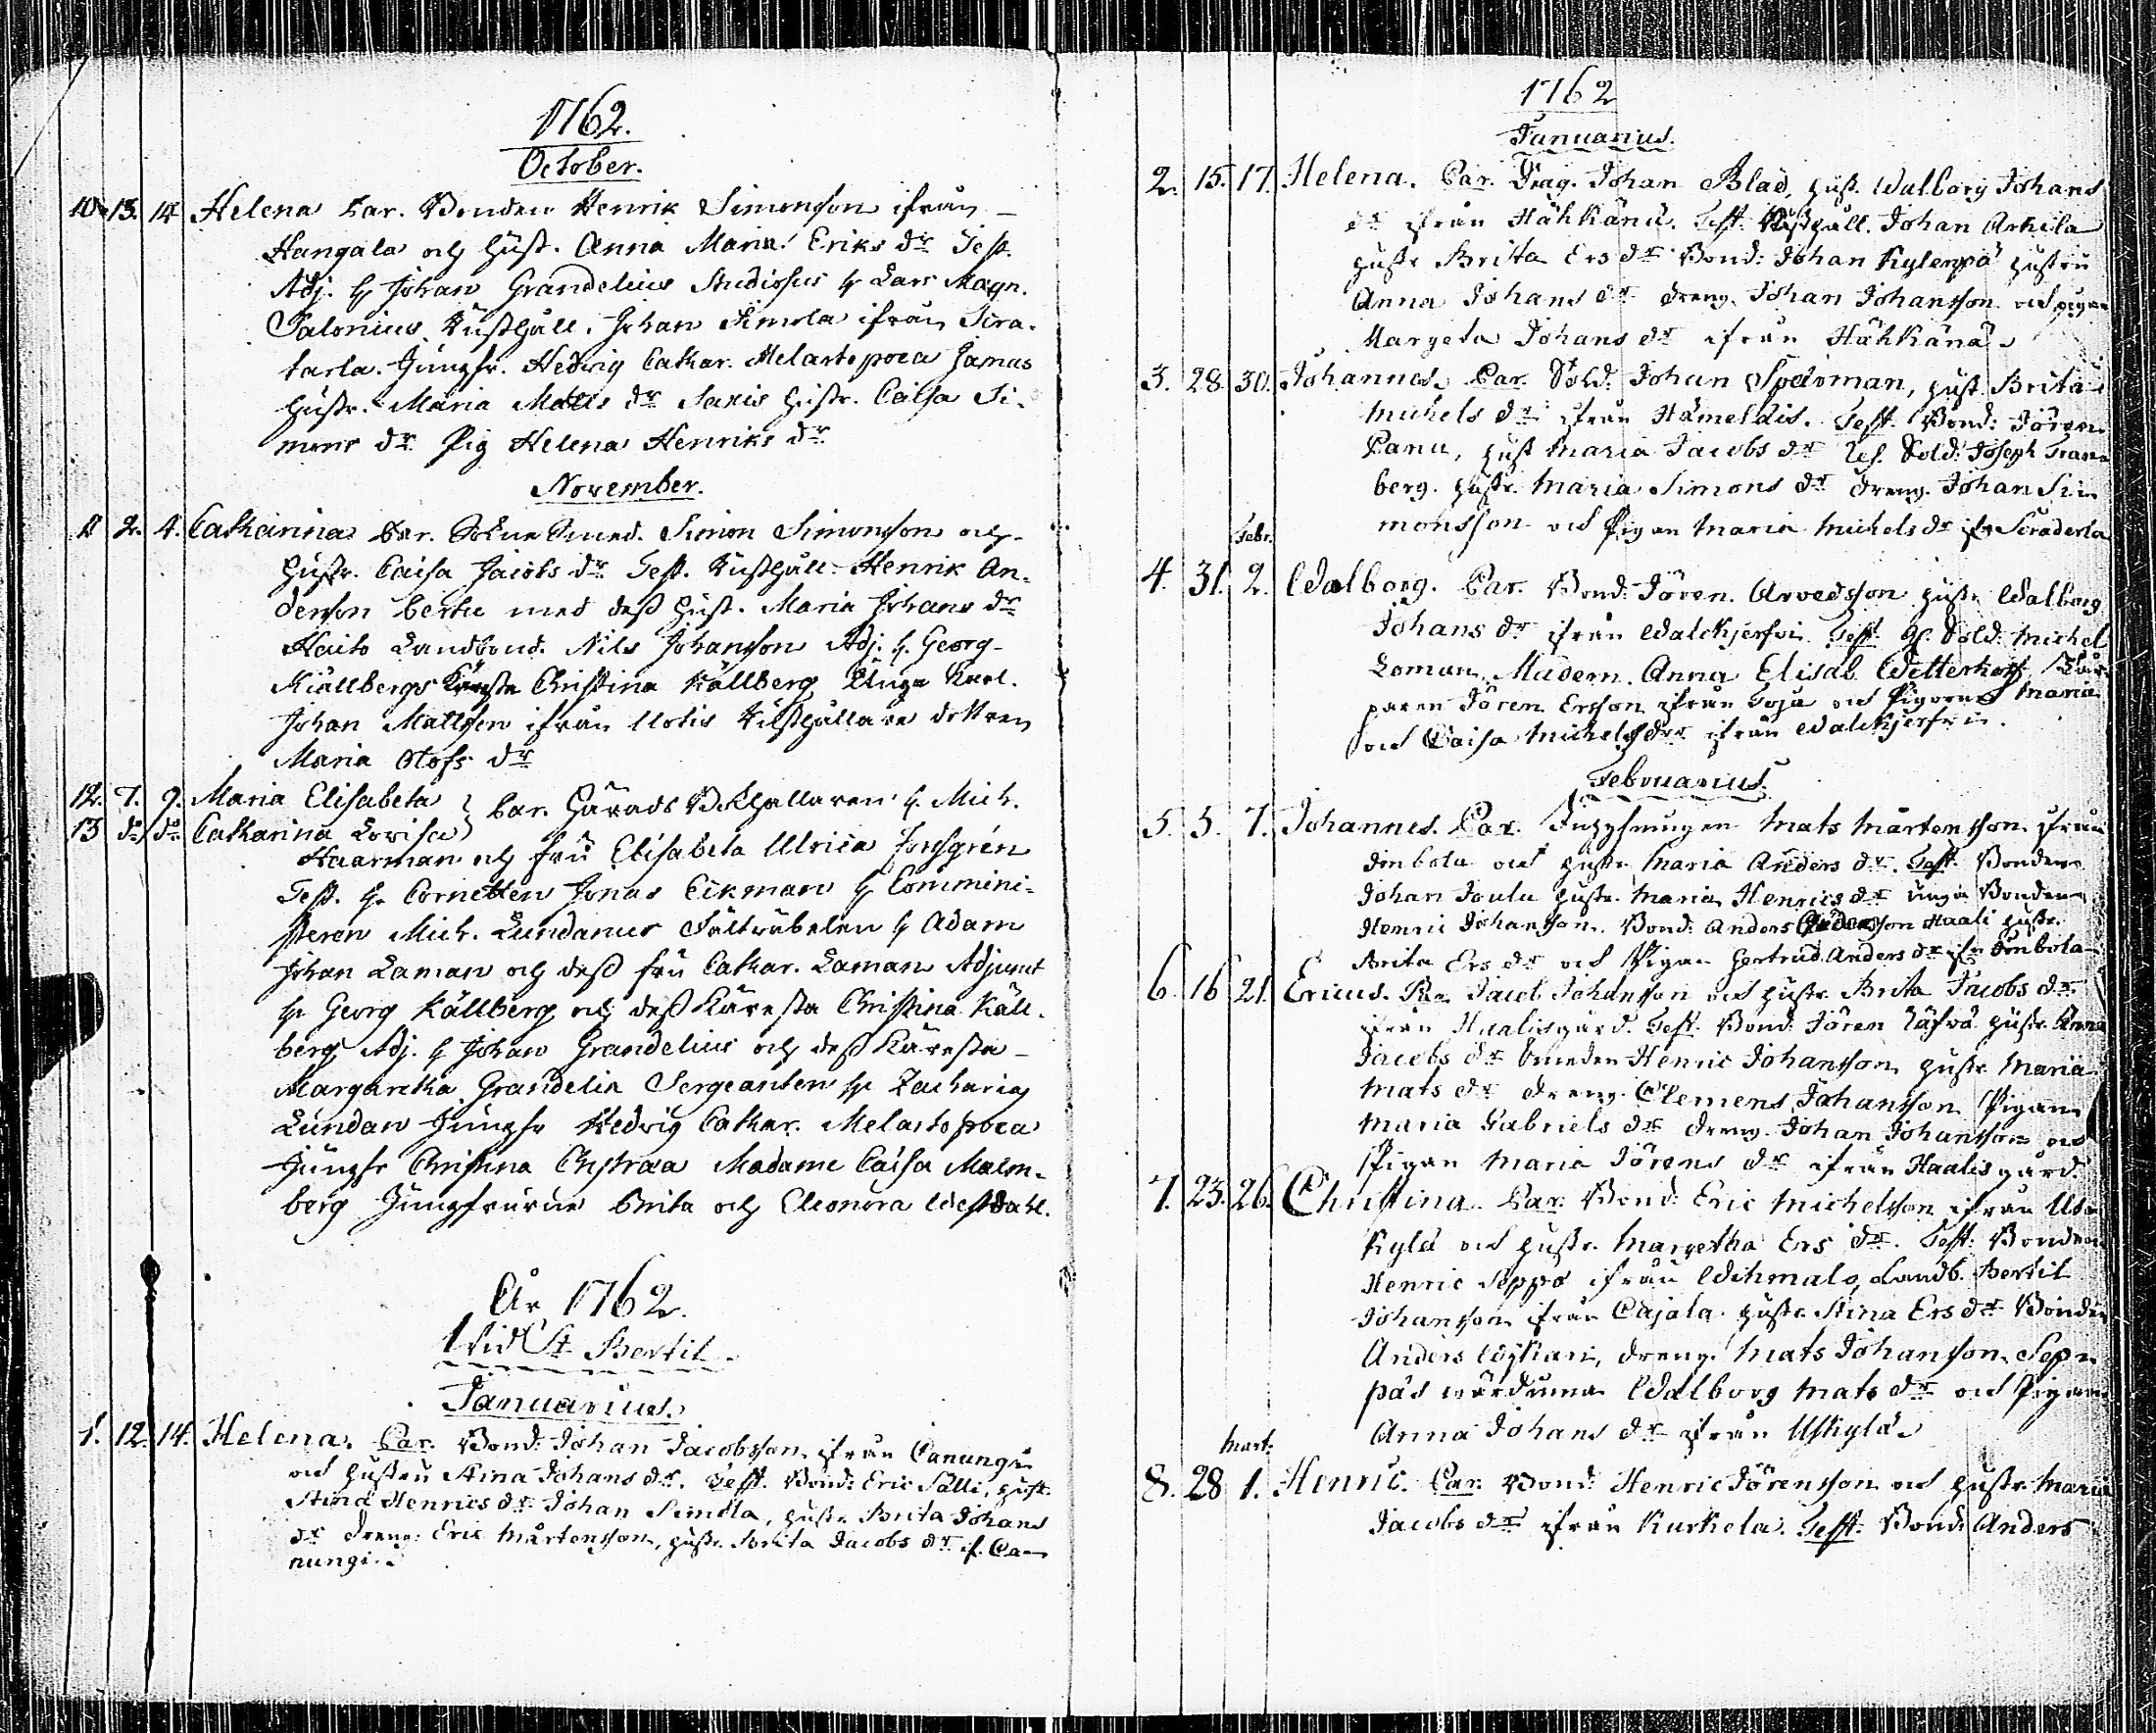 1762.
October.
10. 13. 14. Helena Par. Bonden Henrik Simonsson ifrån
Hangala och Hust. Anna Maria Eriks dr Test.
Adj. H. Johan Grandelius Studiosus H. Lars Magn.
Salonius Rusthåll. Johan Simola ifrån Sira-
tarla. Jungfr. Hedvig Cathar. Melartopoea Jamas
Hustr. Maria Matts dr Saxis Hustr. Caisa Si-
mons dr Pig Helena Henriks dr
November.
11 2. 4. Catharina Par. Sokne Smed. Simon Simonsson och
Hustr. Caisa Jacobs dr Test. Rusthåll. Henrik An-
dersson Perttu med dess Hust. Maria Johans dr
Haito Landbond. Nils Johansson Adj. H. Georg
Kiällbergs Käresta Christina Källberg Unga Karl.
Johan Mattsson ifrån Uotis Rusthållare dottren
Maria Olofs dr
12. 7. 9. Maria Elisabeta } Par. Härads Bokhållaren H. Mich.
13 do do Catharina Lovisa
Haarman och Fru Elisabeta Ulrica Forsgrén
Test. H. Cornetten Jonas Eekman H Commini-
steren Mich. Lundanus Fältväbelen H Adam
Johan Laman och dess Fru Cathar. Laman Adjunct
H. Georg Källberg och dess Käresta Christina Käll-
berg Adj. H Johan Grandelius och dess Käresta
Margaretha Grandelia Sergeanten H. Zacharias
Lundan Jungfr Hedvig Cathar. Melartopoea
Jungfr Christina Chytraea Madame Caisa Malm-
berg Jungfrurne Brita och Eleonora Westdahl.
År 1762.
Vid St Bertil.
Januarius.
1. 12. 14. Helena. Par. Bond: Johan Jacobsson ifrån Canungi
och Hustru Stina Johans dr. Test. Bond: Eric Sälli, Hustr.
Stina Henrics dr Johan Simola, Hustr. Brita Johans
dr Dreng. Eric Mårtensson, Hustr. Brita Jacobs dr if. Ca-
nungi.
1762
Januarius.
2. 15. 17. Helena. Par. Drag. Johan Blad, Hust. Walborg Johans
dr ifrån Hähkänä. Test. Rusthåll. Johan Arkila
Hustr. Brita Ers dr Bond: Johan Kylenpä Hustru
Anna Johans dr Dreng. Johan Johansson och Pigan
Margeta Johans dr ifrån Hähkänä.
3. 28. 30. Johannes. Par. Sold. Johan Spelman, Hust Brita
Michels dr ifrån Hämeldis. Test. Bond: Jören
Panu, Hust Maria Jacobs dr Sold: Joseph Gran-
berg. Hustr. Maria Simons dr Dreng. Johan Si-
monsson och Pigan Maria Michels dr ifr.
Febr.
4. 31. 2. Walborg. Par. Bond: Jören Arvedsson Hustr. Walborg
Johans dr ifrån Walckjerfvi. Test. Sold: Michel
Loman, Madem. Anna Elisab. Wetterhoff,
Jören Ersson ifrån Toja och Pigorna Maria
och Caisa Michels drr ifrån Walckjerfvi.
Februarius.
5. 5. 7. Johannes. Par. Inhysningen Mats Mårtensson ifrån
Dinbola och Hustr. Maria Anders dr. Test. Bonden
Johan Joulu Hustr. Maria Henrics dr unga Bonden
Henric Johansson. Bond: Anders Andersson Haali Hustr.
Brita Ers dr och Pigan Gertrud Anders dr ifr. Dinbola
6. 16 21. Ericus. Par. Jacob Johansson och Hustr. Brita Jacobs dr
ifrån Haalisgård. Test. Bond. Jören Hustr. Anna
Jacobs dr Henric Johansson, Hustr. Maria
Mats dr Dreng. Clemens Johansson Pigan
Maria Gabriels dr Dreng. Johan Johansson och
Pigan Maria Jörens dr ifrån Haalisgård.
7. 23. 26. Christina. Par. Bond: Eric Michelsson ifrån Us-
kylä och Hustr. Margetha Ers dr. Test. Bonden
Henric Seppä ifrån Wihmalo, Landb. Bertil
Johansson ifrån Cajala Hustr. Stina Ers dr Bonden
Anders Dreng. Mats Johansson, Sep-
päs värdinna Walborg Mats dr och Pigan
Anna Johans dr ifrån Uskylä.
Mart.
8. 28 1. Henric. Par. Bond: Henric Jörensson och Hustr. Maria
Jacobs dr ifrån Kurkela. Test. Bond: Anders